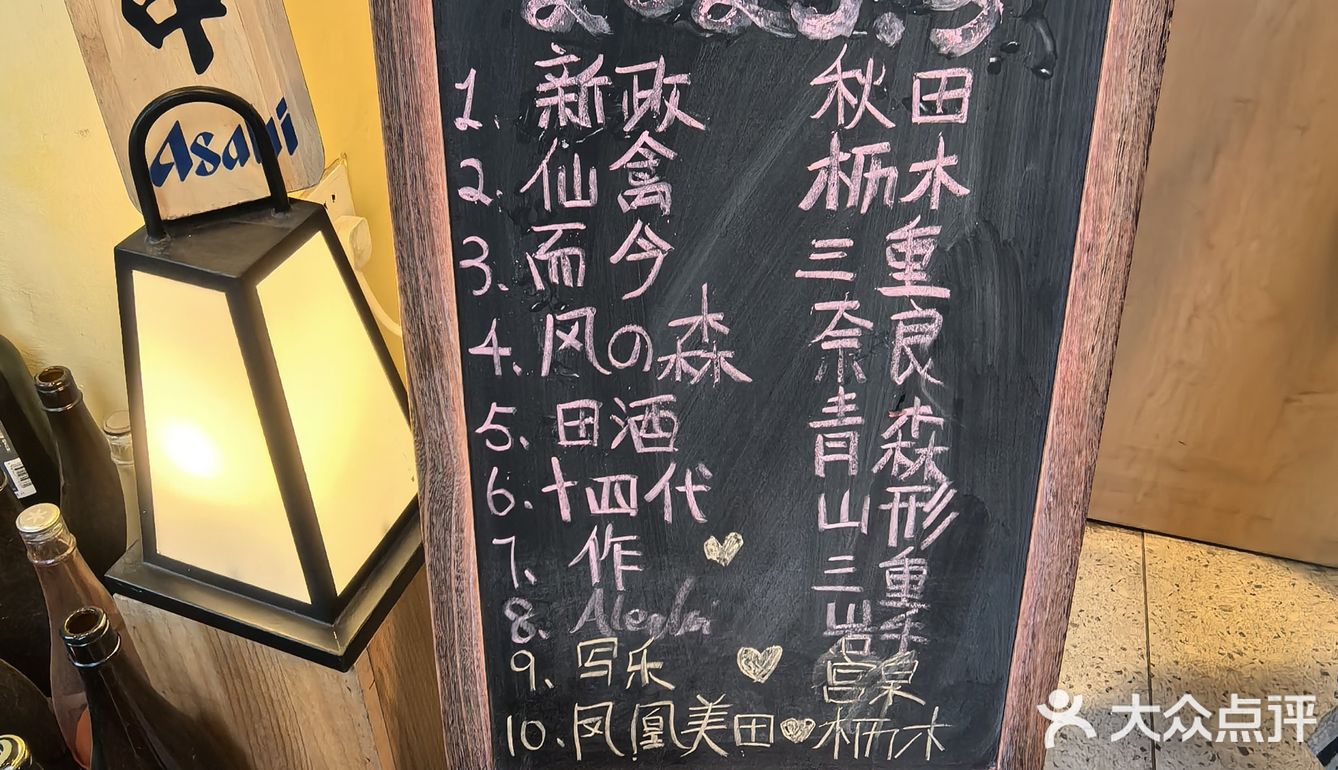 中
Asahi
2025.5
1. 新政 秋田
2. 仙禽 枥木
3. 而今 三重
4. 风の森 奈良
5. 田酒 青森
6. 十四代 山形
7. 作 三重
8.
9. 写乐
10. 凤凰美田 枥木
大众点评